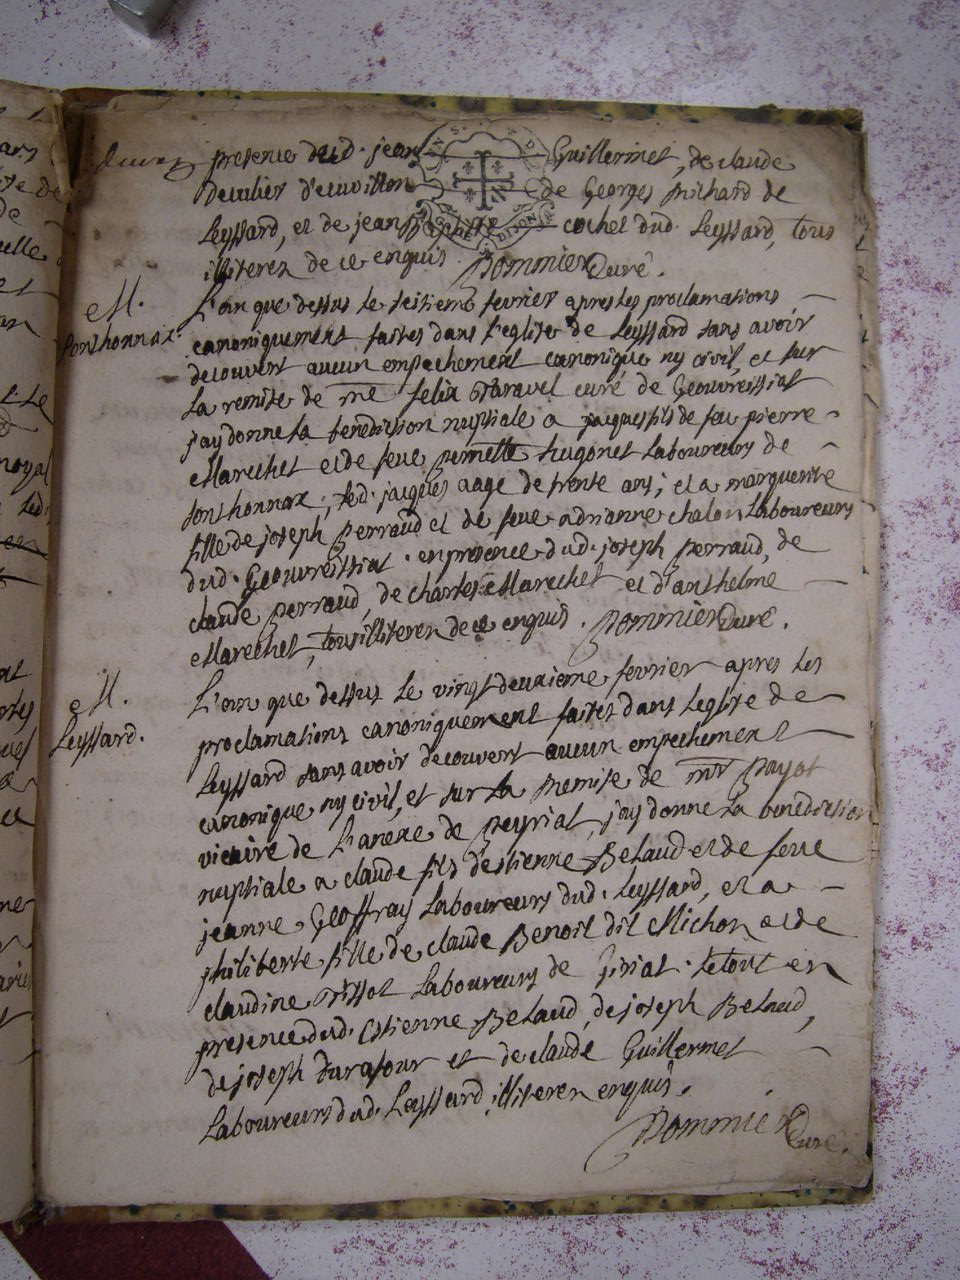 presence dud. jean Guillermet, de claude
de Georges Michard de
Leyssard, et de jean cochet dud. Leyssard, tous
illiterez de ce enquis Pommier Curé.
M.
Sonthonnax.
L'an que dessus le seitieme fevrier apres les proclamations
canoniquement faites dans l'eglise de Leyssard sans avoir
decouvert aucun empechement canonique ny civil, et sur
la remise de mre felix curé de Geovreissiat
j'ay donné la benediction nuptiale a jacques fils de feu pierre
Marechet et de feue pernette hugonet Laboureurs de
sonthonnax, led. jacques aagé de trente ans; et a marguerite
fille de joseph perraud et de feue adrianne chalon Laboureurs
dud. Geouvreissiat. en presence dud. joseph perraud, de
claude perraud, de charles Marechet et d'anthelme
Marechet, tous illiterez de ce enquis. Pommier Curé.
M.
Leyssard.
L'an que dessus le vingtdeuxieme fevrier apres les
proclamations canoniquement faites dans leglise de
Leyssard sans avoir decouvert aucun empechement
canonique ny civil, et sur la remise de mre payot
vicaire de L'anexe de peyriat, j'ay donné la benediction
nuptiale a claude fils d'estienne Belaud et de feue
jeanne Geoffray Laboureurs dud. Leyssard, et a
philiberte fille de claude Benoit dit Michon et de
claudine Laboureurs de le tout en
presence dud. Estienne Belaud, de joseph Belaud,
de joseph durafour et de claude Guillermet
Laboureurs dud. Leyssard illiterez enquis.
Pommier Curé.